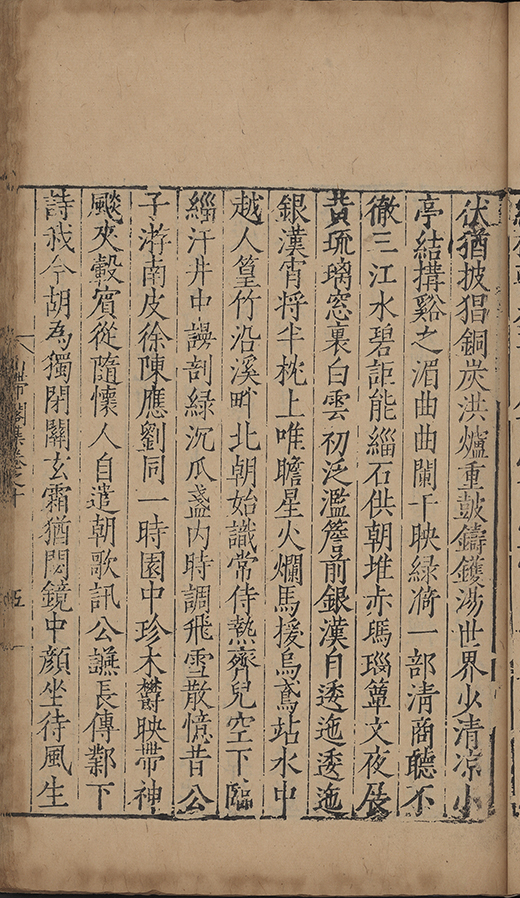 伏猶披猖銅炭洪爐重鼓鑄鑊湯世界少清凉小
亭結搆谿之湄曲曲闌干映綠漪一部清商聽不
徹三江水碧詎能緇石供朝堆赤瑪瑙簟文夜展
黃琉璃窓裏白雲初泛濫簷前銀漢自逶迤逶迤
銀漢宵將半枕上唯瞻星火爛馬援烏鳶站水中
越人篁竹沿溪畔北朝始識常侍熱齊兒空下臨
緇汗井中謾剖綠沉瓜盞内時調飛雪散憶昔公
子游南皮徐陳應劉同一時園中珍木欝映帶神
飈夾轂賓從隨懷人自遣朝歌訊公讌長傳鄴下
詩我今胡為獨閉關玄霜猶閟鏡中顔坐待風生